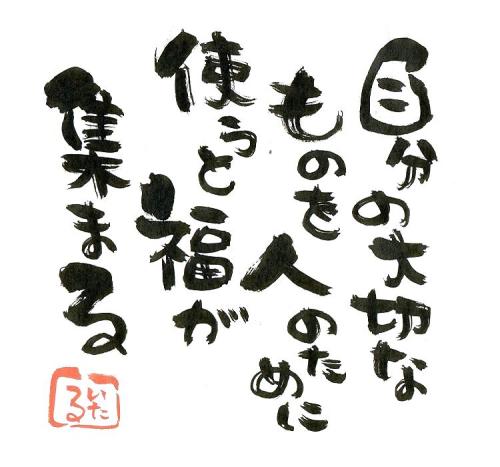 自分の大切な
ものを人のために
使うと福が
集まる
いたる